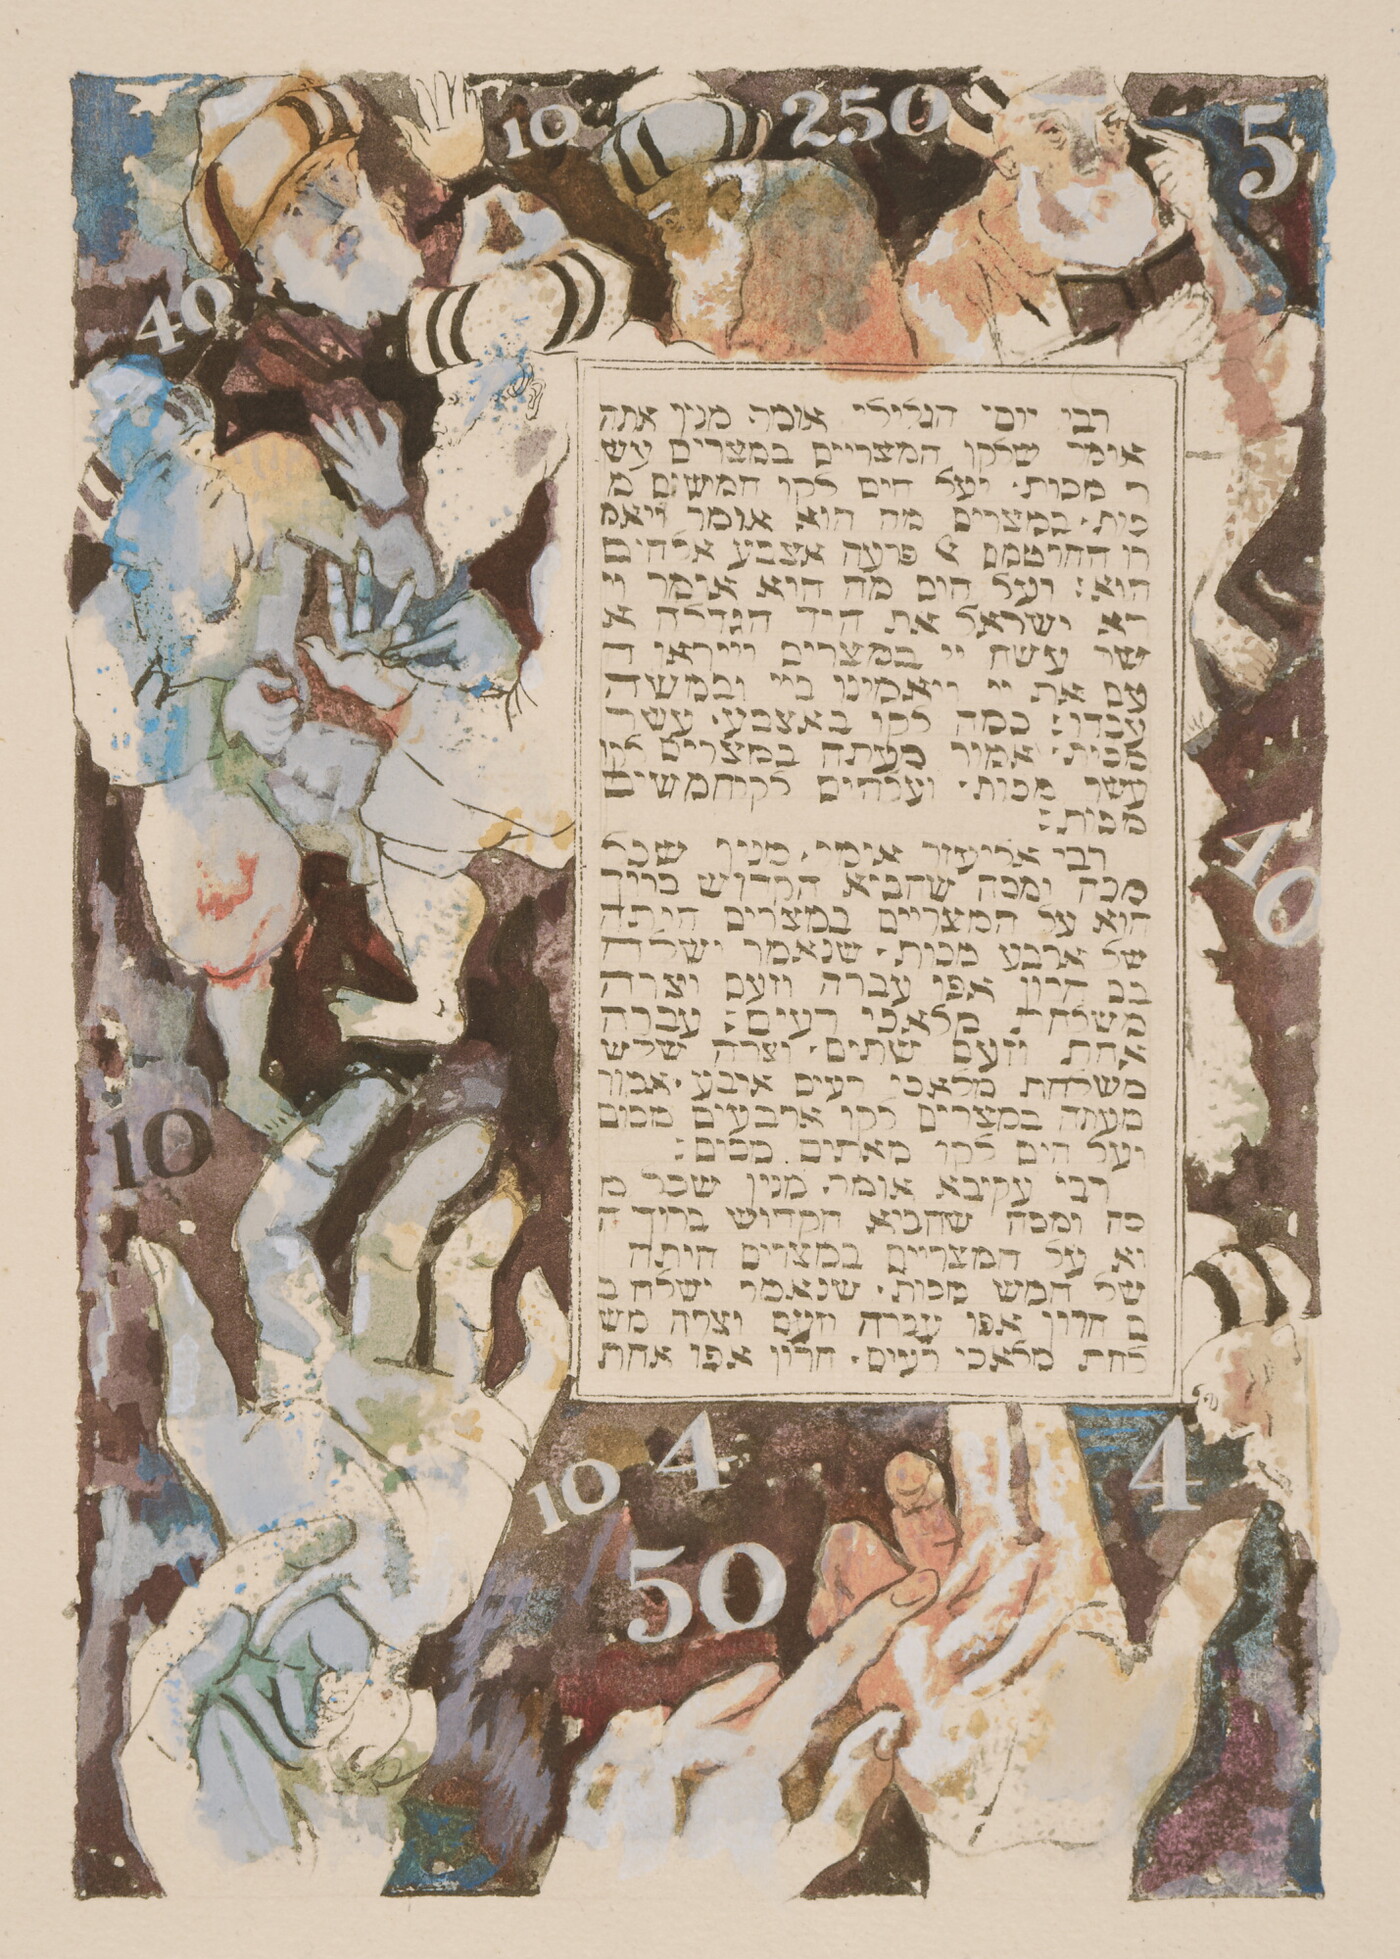 10
250
5
40
רבי יוסי הגלילי אומר מנין אתה
אומר שלקו המצריים במצרים עש
ר מכות· ועל הים לקו חמשים מ
כות· במצרים מה הוא אומר ויאמ
רו החרטמם ל פרעה אצבע אלהים
הוא: ועל הים מה הוא אומר וי
רא ישראל את היד הגדלה א
שר עשה יי במצרים וייראו ה
עם את יי ויאמינו ביי ובמשה
עבדו: כמה לקו באצבע· עשר
מכות· אמור מעתה במצרים לקו
עשר מכות· ועלהים לקוחמשים
מכות:
רבי אליעזר אומר· מנין שכל
מכה ומכה שהביא הקדוש ברוך
הוא על המצריים במצרים היתה
של ארבע מכות· שנאמר ישלח
בם חרון אפו עברה וזעם וצרה
משלחת מלאכי רעים: עברה
אחת וזעם שתים· וצרה שלש
משלחת מלאכי רעים ארבע· אמור
מעתה במצרים לקו ארבעים מכות
ועל הים לקו מאתים מכות:
רבי עקיבא אומר· מנין שכל מ
כה ומכה שהביא הקדוש ברוך ה
וא על המצריים במצרים היתה
של חמש מכות· שנאמר ישלח ב
ם חרון אפו עברה וזעם וצרה מש
לחת מלאכי רעים· חרון אפו אחת
40
10
10
4
4
50